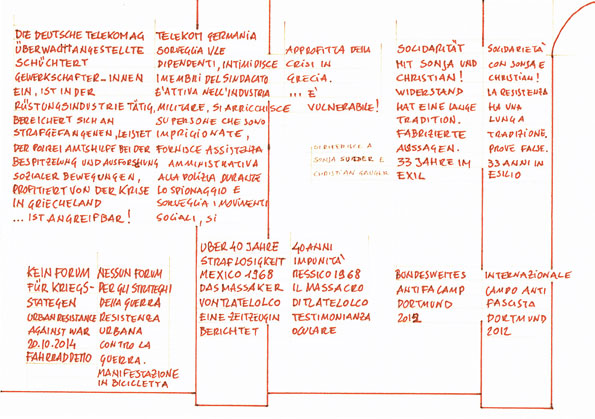 DIE DEUTSCHE TELEKOM AG
ÜBERWACHT ANGESTELLTE
SCHÜCHTERT
GEWERKSCHAFTER_INNEN
EIN, IST IN DER
RÜSTUNGSINDUSTRIE TÄTIG,
BEREICHERT SICH AN
STRAFGEFANGENEN, LEISTET
DER POLIZEI AMTSHILFE BEI DER
BESPITZELUNG UND AUSFORSCHUNG
SOZIALER BEWEGUNGEN,
PROFITIERT VON DER KRISE
IN GRIECHELAND
... IST ANGREIFBAR!
TELEKOM GERMANIA
SORVEGLIA
DIPENDENTI, INTIMIDISCE
I MEMBRI DEL SINDACATO
E'ATTIVA NELL'INDUSTRIA
MILITARE, SI ARRICCHISCE
SU PERSONE CHE SONO
IMPRIGIONATE,
FORNISCE ASSISTENZA
AMMINISTRATIVA
ALLA POLIZIA DURANTE
LO SPIONAGGIO E
SORVEGLIA I MOVIMENTI
SOCIALI, SI
APPROFITTA DELLA
CRISI IN
GRECIA.
... E'
VULNERABILE!
SONJA SUEDER E
CHRISTIAN GAUGER
SOLIDARITÄT
MIT SONJA UND
CHRISTIAN!
WIDERSTAND
HAT EINE LANGE
TRADITION.
FABRIZIERTE
AUSSAGEN.
33 JAHRE IM
EXIL
SOLIDARIETÀ
CON SONJA E
CHRISTIAN!
LA RESISTENZA
HA UNA
LUNGA
TRADIZIONE.
PROVE FALSE.
33 ANNI IN
ESILIO
KEIN FORUM
FÜR KRIEGS-
STATEGEN
URBAN RESISTANCE
AGAINST WAR
20.10.2014
FAHRRADDEMO
NESSUN FORUM
PER GLI STRATEGHI
DELLA GUERRA
RESISTENZA
URBANA
CONTRO LA
GUERRA.
MANIFESTAZIONE
IN BICICLETTA
ÜBER 40 JAHRE
STRAFLOSIGKEIT
MEXICO 1968
DAS MASSAKER
VON TLATELOLCO
EINE ZEITZEUGIN
BERICHTET
40 ANNI
IMPUNITÀ
MESSICO 1968
IL MASSACRO
DI TLATELOLCO
TESTIMONIANZA
OCULARE
BUNDESWEITES
ANTIFA CAMP
DORTMUND
2012
INTERNAZIONALE
CAMPO ANTI
FASCISTA
DORTMUND
2012